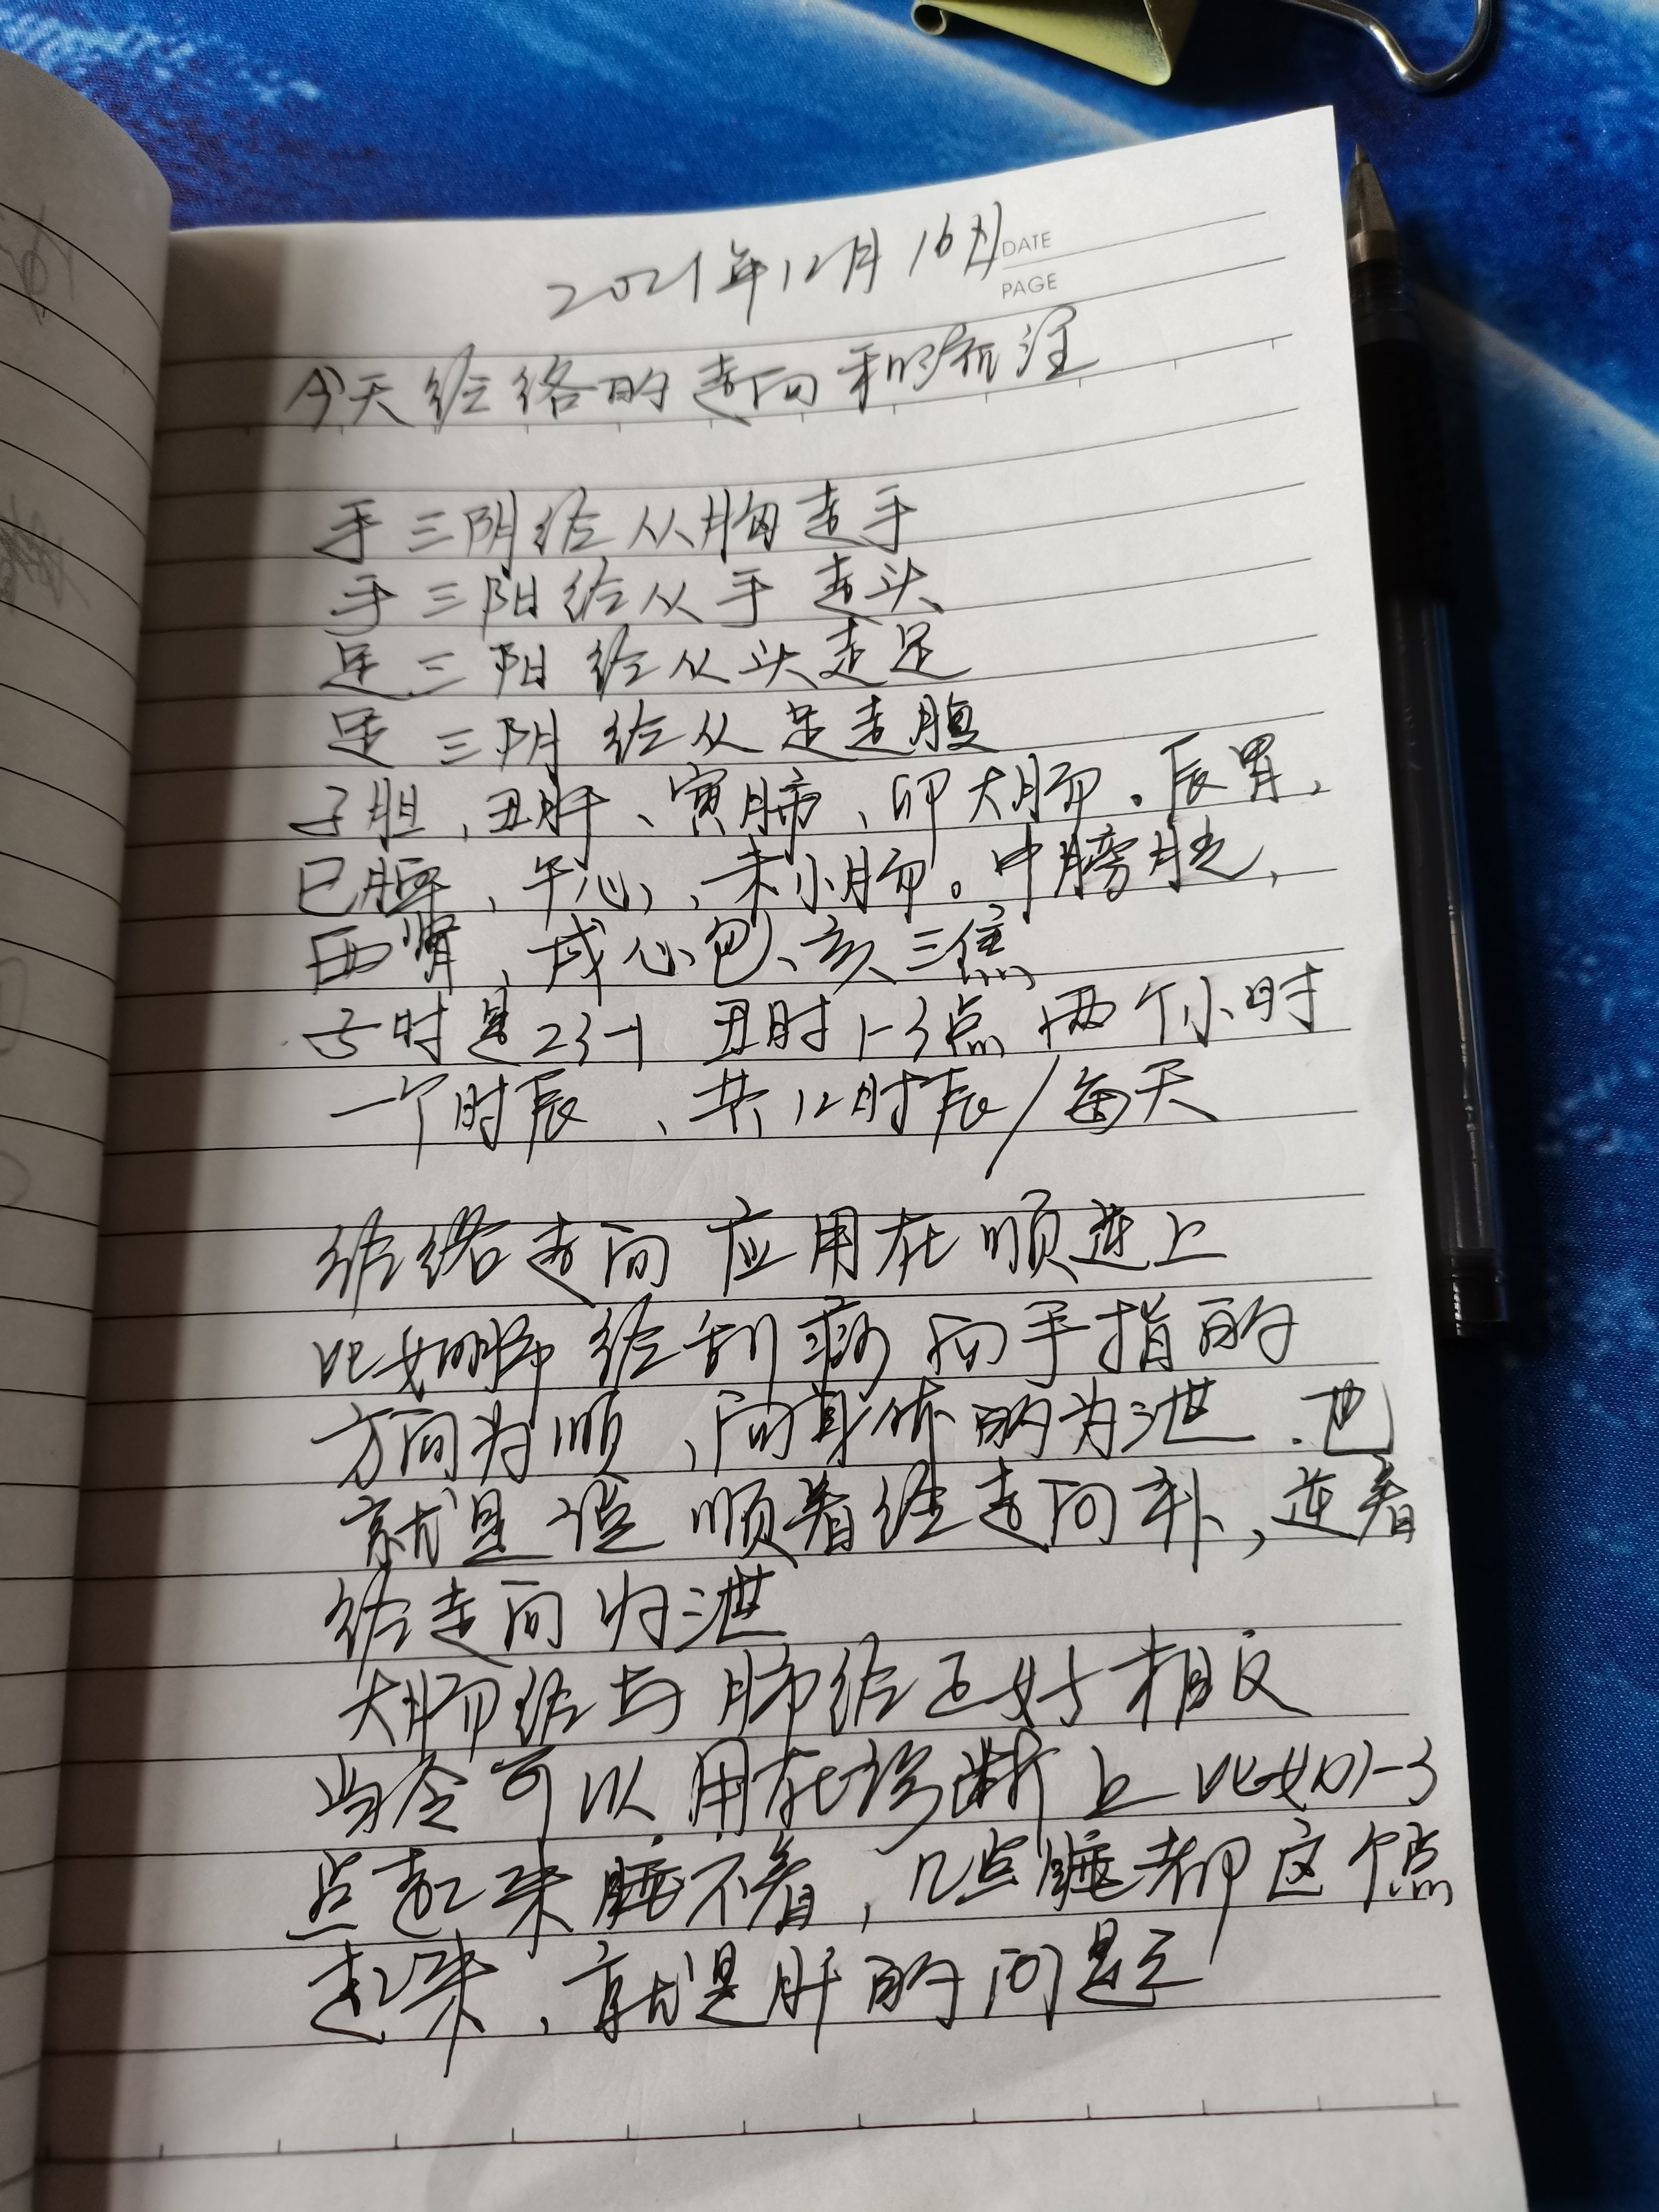 2021年12月16日
DATE
PAGE
今天经络的走向和的流注
手三阴经从胸走手
手三阳经从手走头
足三阳经从头走足
足三阴经从足走腹
子胆、丑肝、寅肺、卯大肠。辰胃、
巳脾、午心、未小肠。申膀胱、
酉肾、戌心包、亥三焦
子时是23-1 丑时1-3点 两个小时
一个时辰、共12时辰/每天
经络走向应用在顺逆上
比如肺经刮痧向手指的
方向为顺、向身体的为泄.也
就是说顺着经走向补,逆着
经走向为泄
大肠经与肺经正好相反
当令可以用在诊断上比如1-3
点起来睡不着,几点睡都这个点
起来、就是肝的问题